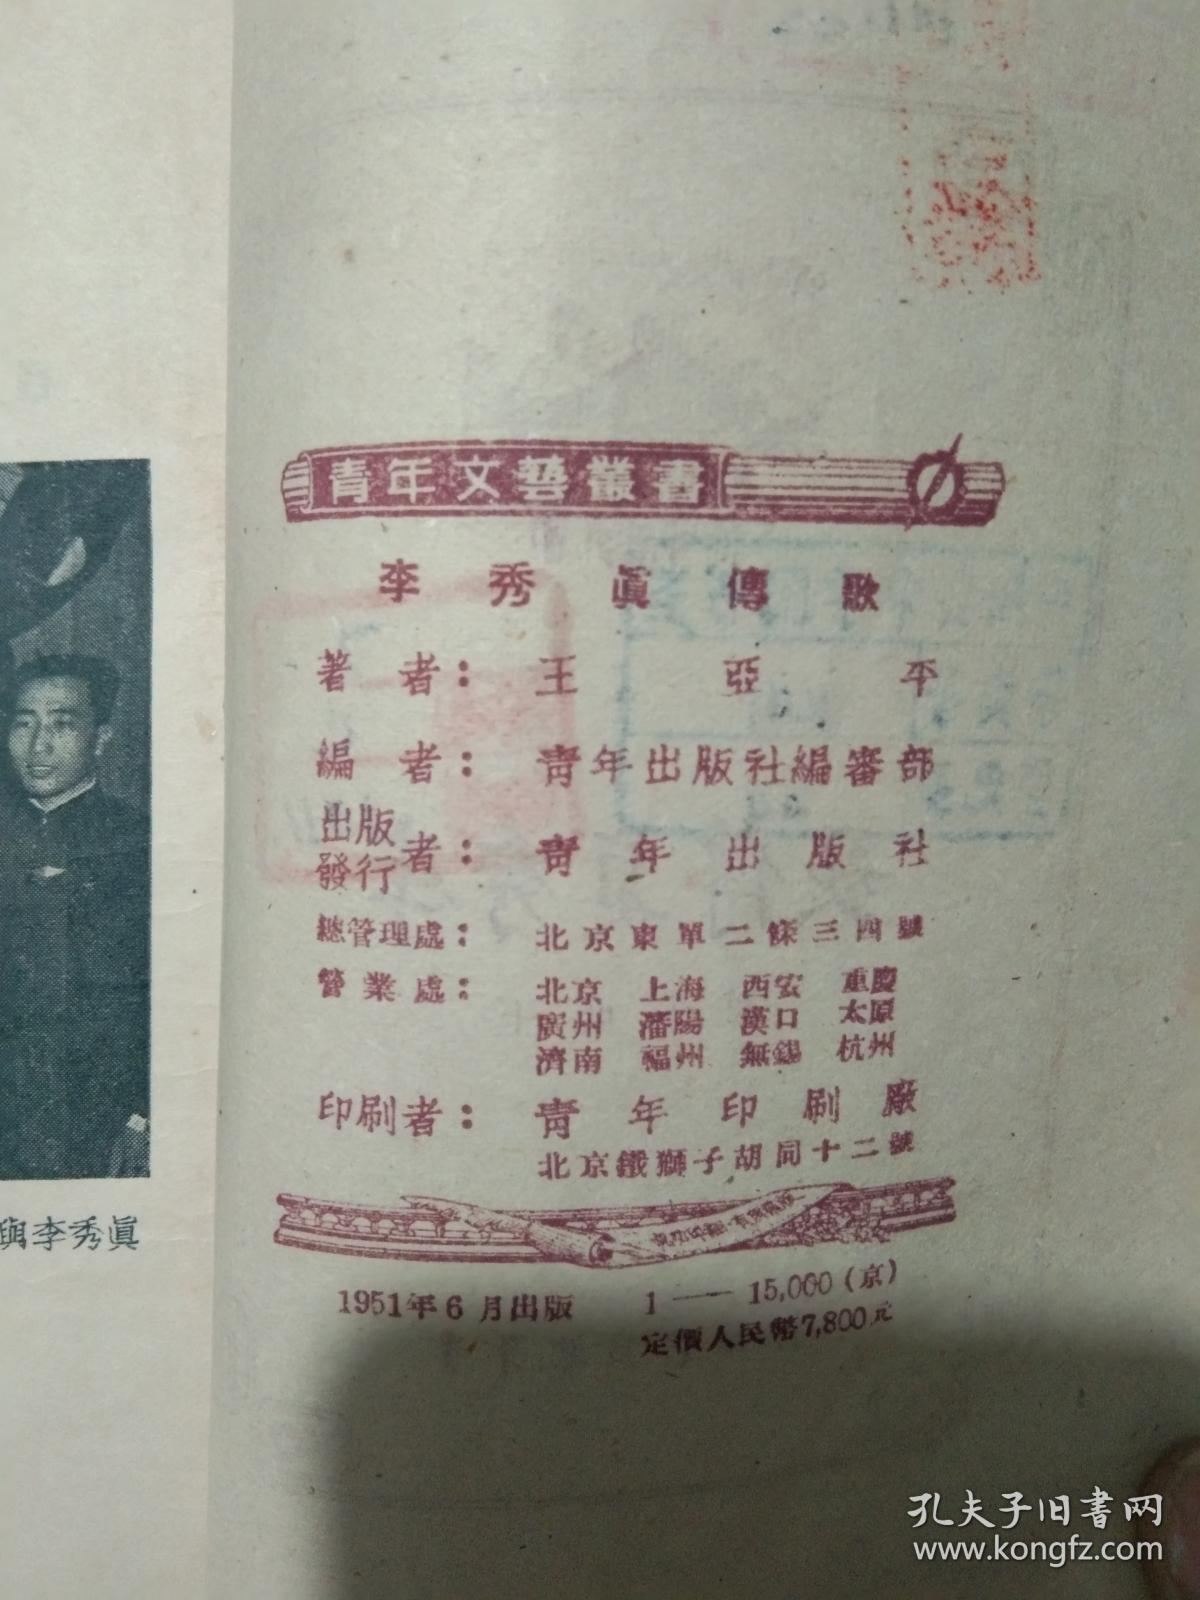 青年文藝叢書
李秀眞傳歌
著者：王亞平
編者：青年出版社編審部
出版發行者：青年出版社
總管理處：北京東單二條三四號
營業處：北京 上海 西安 重慶
廣州 瀋陽 漢口 太原
濟南 福州 無錫 杭州
印刷者：青年印刷廠
北京鐵獅子胡同十二號
1951年6月出版 1——15,000（京）
定價人民幣7,800元
與李秀眞
孔夫子旧书网
www.kongfz.com